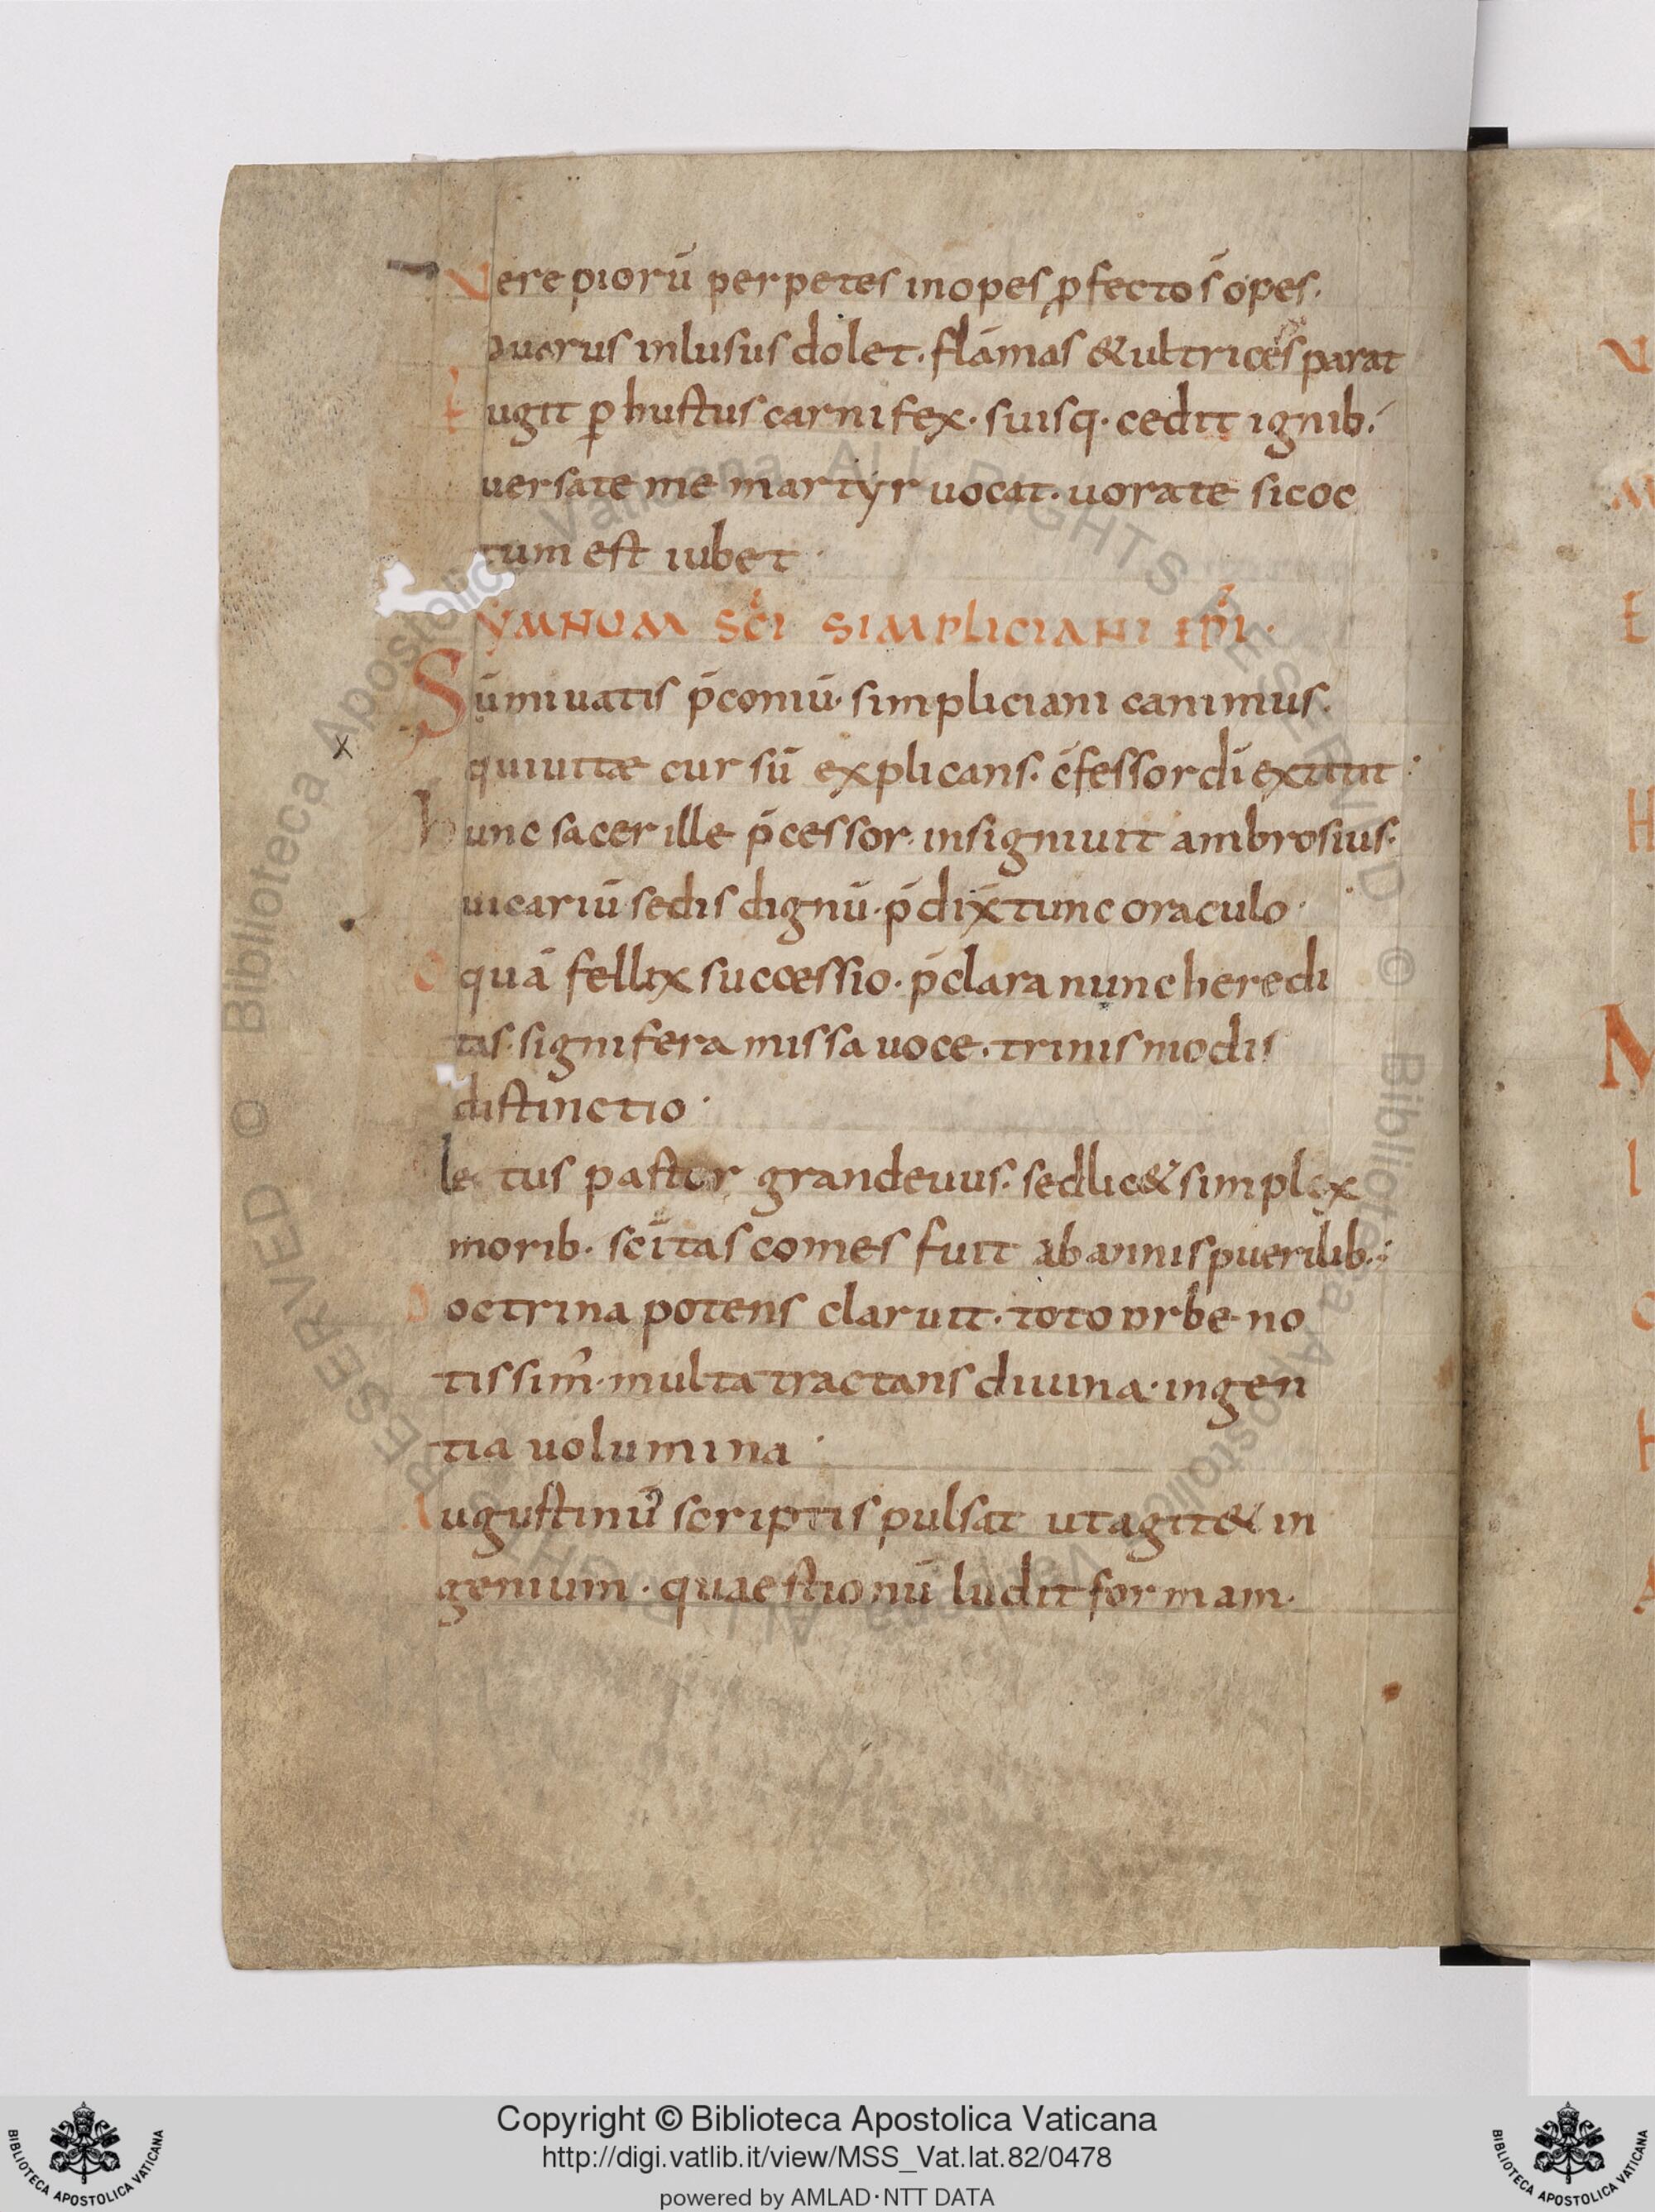 Vere piorū perpetes inopes ꝓfecto s̄ opes·
auarus inlusus dolet· flāmas & ultrices parat
Fugit ꝓ hustus carnifex· suisq· cedit ignib·
uersate me martyr uocat· uorate si coc
tum est iubet·
YMNUM SC̄I SIMPLICIANI EPĪ·
Sūmi uatis p̄coniū· simpliciani canimus·
qui uitæ cursū explicans· c̄fessor dī extitit·
hunc sacer ille p̄cessor· insigniuit ambrosius·
uicariū sedis dignū· p̄dix̄ tunc oraculo·
O quā fellix successio· p̄clara nunc heredi
tas· signifera missa uoce· trinis modis
distinctio·
lectus pastor grandeuus· sed lic& simplex
morib· sc̄itas comes fuit ab annis puerilib·:
Doctrina potens claruit· toto orbe no
tissim̓· multa tractans diuina· ingen
tia uolumina·
Augustinu᾽ scriptis pulsat ut agit& in
genium· quaestionū ludit formam·
Copyright © Biblioteca Apostolica Vaticana
http://digi.vatlib.it/view/MSS_Vat.lat.82/0478
powered by AMLAD·NTT DATA
BIBLIOTECA APOSTOLICA VATICANA
BIBLIOTECA APOSTOLICA VATICANA